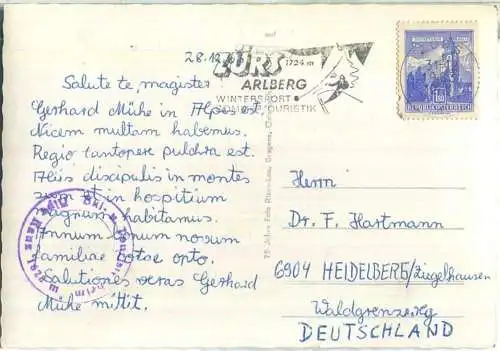 28.12.
ZÜRS 1724 m
ARLBERG
WINTERSPORT
TOURISTIK
REPUBLIK ÖSTERREICH
Salute te, magister
Gerhard Mühe in Alpes est.
Nicem multam habemus.
Regio tantopere pulchra est.
Aliis discipulis in montes
sum et in hospitium
magnum habitamus.
Annum bonum novum
familiae totae opto.
Salutiones veras Gerhard
Mühe mittit.
Herrn
Dr. F. Hartmann
6904 HEIDELBERG/Ziegelhausen
Waldgrenzweg
DEUTSCHLAND